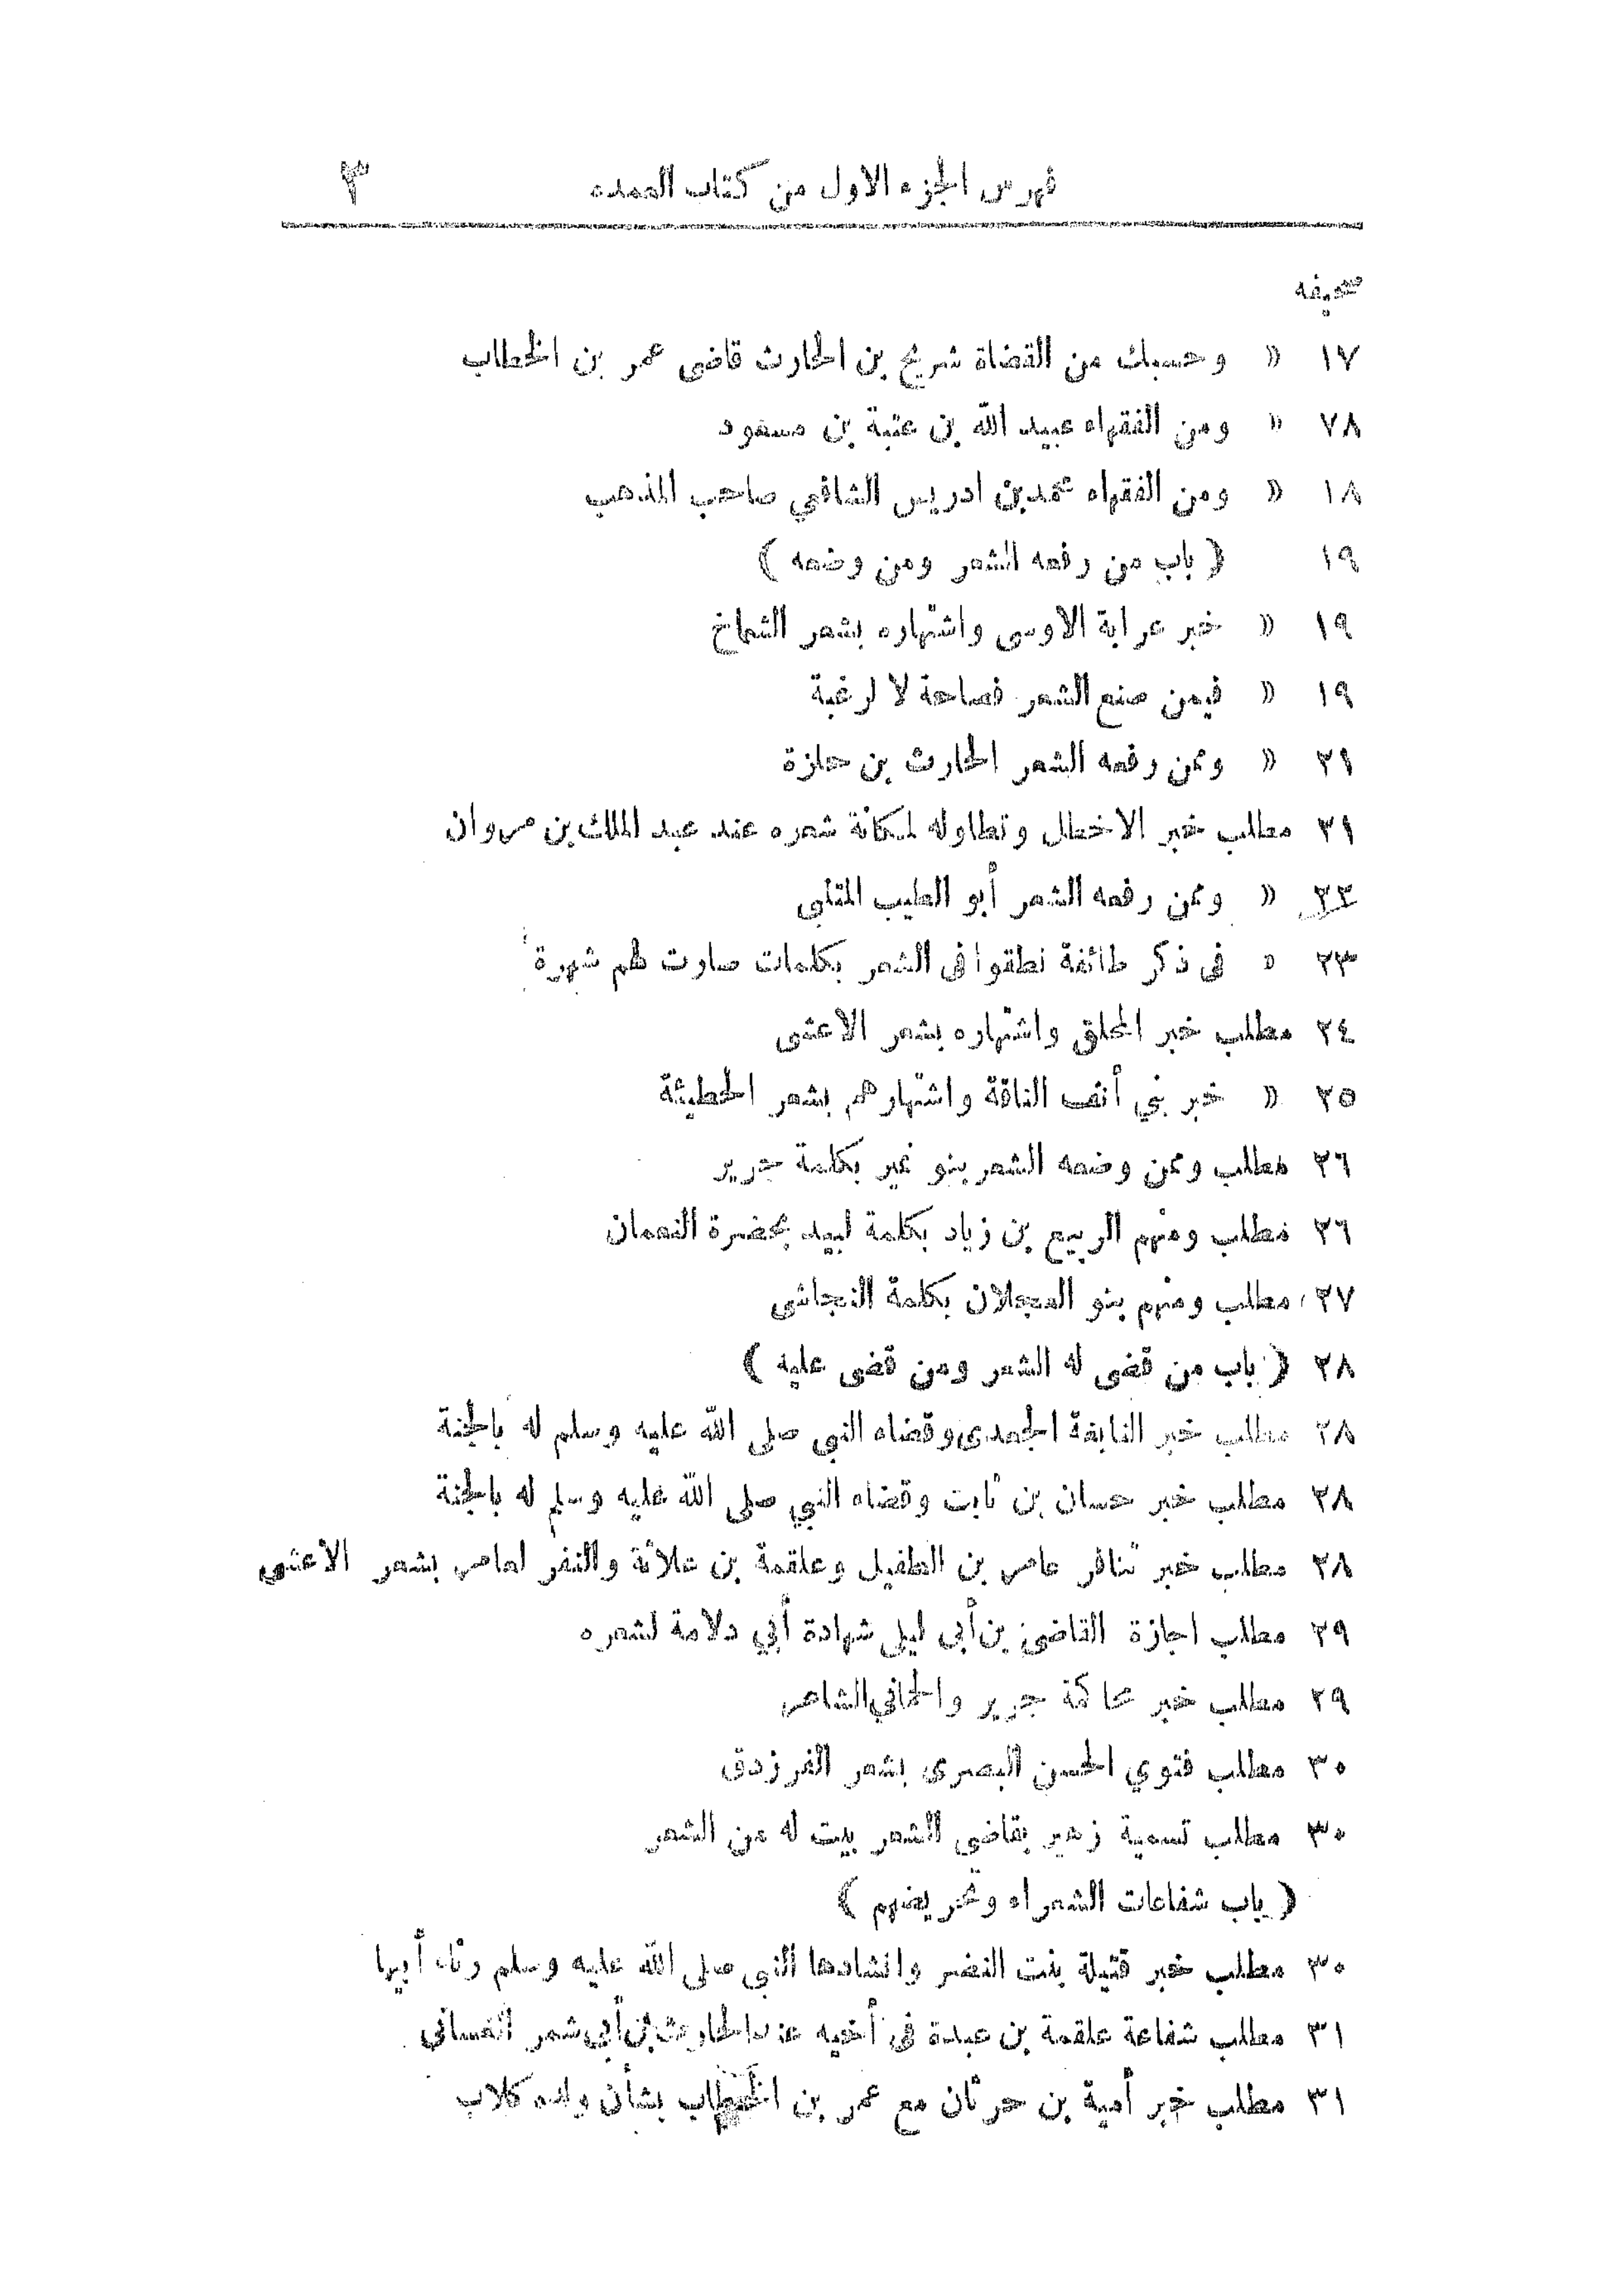 فهرس الجزء الاول من كتاب العمده ٣
صحيفه
١٧ » وحسبك من القضاة شريح بن الحارث قاضى عمر بن الخطاب
٧٨ » ومن الفقهاء عبيد الله بن عتبة بن مسعود
١٨ » ومن الفقهاء محمد بن ادريس الشافعي صاحب المذهب
١٩ ( باب من رفعه الشعر ومن وضعه )
١٩ » خبر عرابة الاوسى واشتهاره بشعر الشماخ
١٩ » فيمن صنع الشعر فصاحة لا لرغبة
٢١ » وممن رفعه الشعر الحارث بن حلزة
٢١ مطلب خبر الاخطل وتطاوله لمكانة شعره عند عبد الملك بن مروان
٢٢ » وممن رفعه الشعر أبو الطيب المتنبى
٢٣ » فى ذكر طائفة نطقوا فى الشعر بكلمات صارت لهم شهرة
٢٤ مطلب خبر المحلق واشتهاره بشعر الاعشى
٢٥ » خبر بني أنف الناقة واشتهارهم بشعر الحطيئة
٢٦ مطلب وممن وضعه الشعر بنو نمير بكلمة جرير
٢٦ مطلب ومنهم الربيع بن زياد بكلمة لبيد بحضرة النعمان
٢٧ مطلب ومنهم بنو العجلان بكلمة النجاشى
٢٨ ( باب من قضى له الشعر ومن قضى عليه )
٢٨ مطلب خبر النابغة الجعدى وقضاء النبي صلى الله عليه وسلم له بالجنة
٢٨ مطلب خبر حسان بن ثابت وقضاء النبي صلى الله عليه وسلم له بالجنة
٢٨ مطلب خبر تنافر عامر بن الطفيل وعلقمة بن علاثة والنفر لعامر بشعر الاعشى
٢٩ مطلب اجازة القاضى بن أبى ليلى شهادة أبي دلامة لشعره
٢٩ مطلب خبر محاكمة جرير والحماني الشاعر
٣٠ مطلب فتوي الحسن البصرى بشعر الفرزدق
٣٠ مطلب تسمية زهير بقاضى الشعر ببيت له من الشعر
( باب شفاعات الشعراء وتحريضهم )
٣٠ مطلب خبر قتيلة بنت النضر وانشادها النبي صلى الله عليه وسلم رثاء أبيها
٣١ مطلب شفاعة علقمة بن عبدة فى أخيه عند الحارث بن أبي شمر الغسانى
٣١ مطلب خبر أمية بن حرثان مع عمر بن الخطاب بشأن ولده كلاب